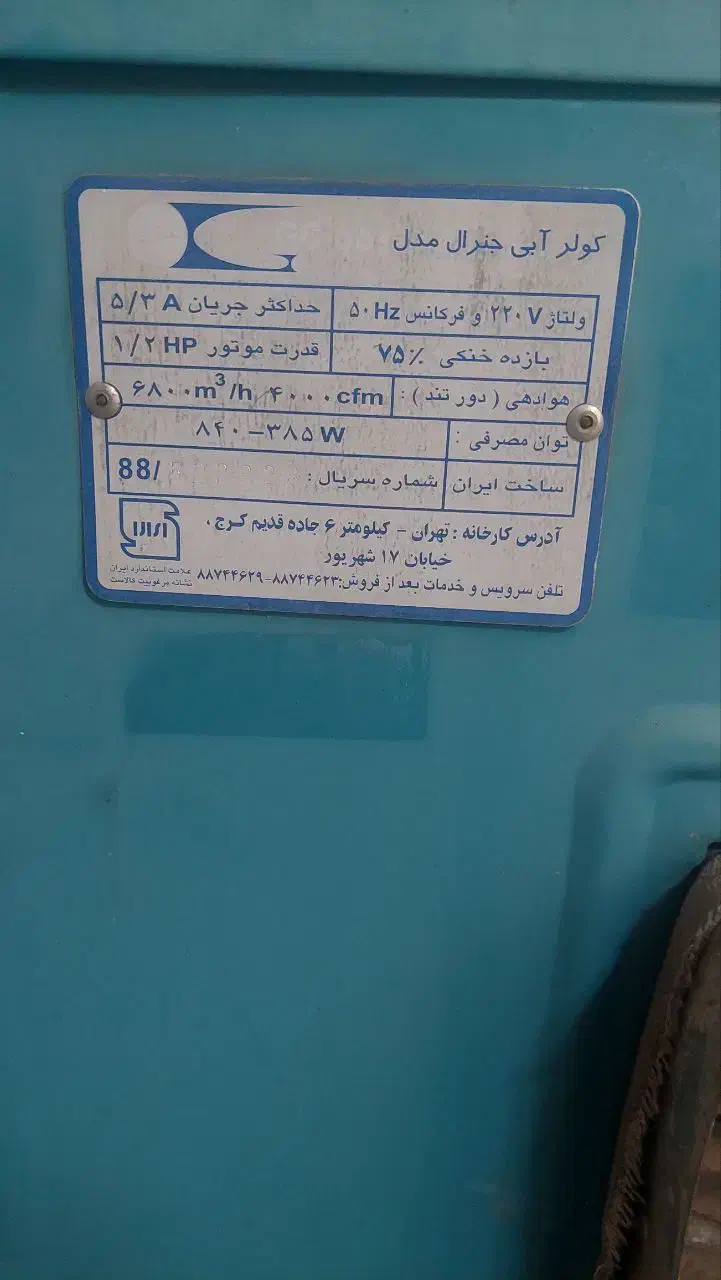 کولر آبی جنرال مدل
ولتاژ ۲۲۰V و فرکانس ۵۰Hz حداکثر جریان ۵/۳ A
بازده خنکی ۷۵٪ قدرت موتور ۱/۲ HP
هوادهی ( دور تند ) : ۶۸۰۰m³/h ۴۰۰۰cfm
توان مصرفی : ۸۴۰–۳۸۵W
ساخت ایران شماره سریال : 88/
آدرس کارخانه : تهران - کیلومتر ۶ جاده قدیم کرج،
خیابان ۱۷ شهریور
تلفن سرویس و خدمات بعد از فروش:۸۸۷۴۴۶۲۳-۸۸۷۴۴۶۲۹
علامت استاندارد ایران
نشانه مرغوبیت کالاست